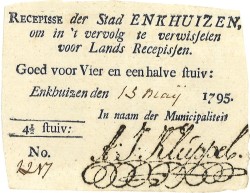 RECEPISSE der Stad ENKHUIZEN,
om in 't vervolg te verwisselen
voor Lands Recepissen.
Goed voor Vier en een halve stuiv:
Enkhuizen den 15 Maij 1795.
In naam der Municipaliteit
4½ stuiv:
A. J. Kluppel
No.